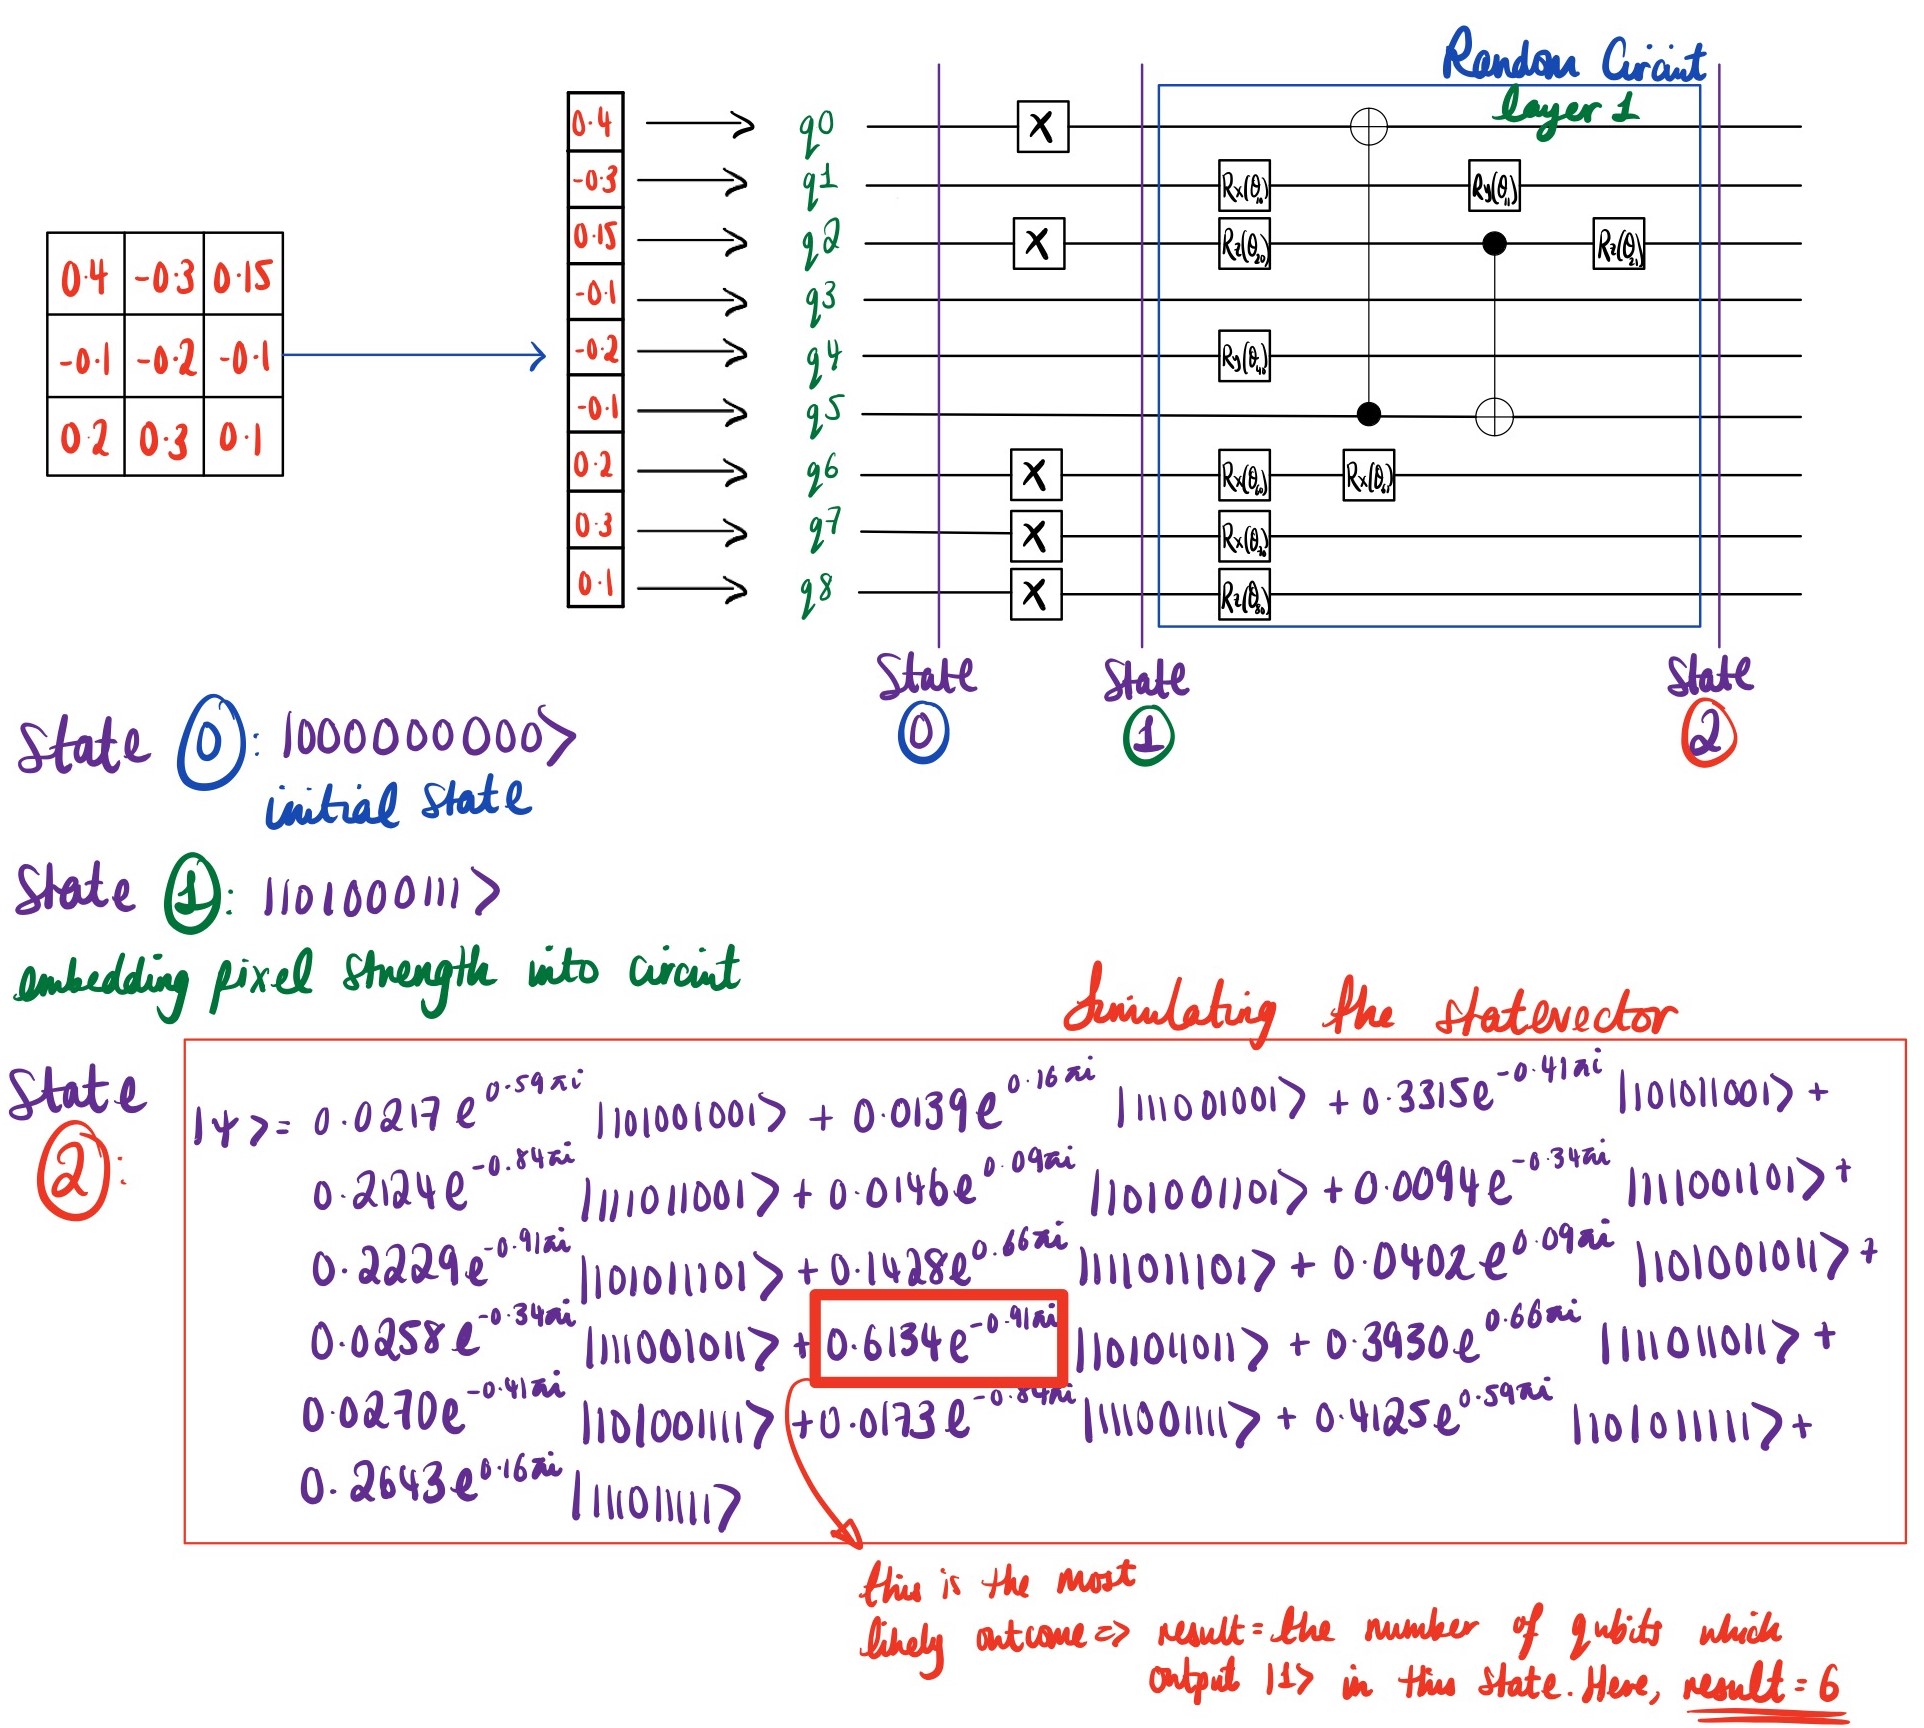 Random Circuit
layer 1
0.4 q0 X
-0.3 q1 Rx(θ₁₀) Ry(θ₁₁)
0.15 q2 X Rz(θ₂₀) Rz(θ₂₁)
-0.1 q3
-0.2 q4 Ry(θ₄₀)
-0.1 q5
0.2 q6 X Rx(θ₆₀) Rx(θ₆₁)
0.3 q7 X Rx(θ₇₀)
0.1 q8 X Rz(θ₈₀)
0.4 -0.3 0.15
-0.1 -0.2 -0.1
0.2 0.3 0.1
State 0
State 1
State 2
State 0: |000000000>
initial state
State 1: |101000111>
embedding pixel strength into circuit
Simulating the statevector
State 2:
|ψ> = 0.0217e^0.59πi |101001001> + 0.0139e^0.16πi |111001001> + 0.3315e^-0.41πi |101011001> +
0.2124e^-0.84πi |111011001> + 0.0146e^0.09πi |101001101> + 0.0094e^-0.34πi |111001101> +
0.2229e^-0.91πi |101011101> + 0.1428e^0.66πi |111011101> + 0.0402e^0.09πi |101001011> +
0.0258e^-0.34πi |111001011> + 0.6134e^-0.91πi |101011011> + 0.3930e^0.66πi |111011011> +
0.0270e^-0.41πi |101001111> + 0.0173e^-0.84πi |111001111> + 0.4125e^0.59πi |101011111> +
0.2643e^0.16πi |111011111>
this is the most
likely outcome => result = the number of qubits which
output |1> in this state. Here, result = 6